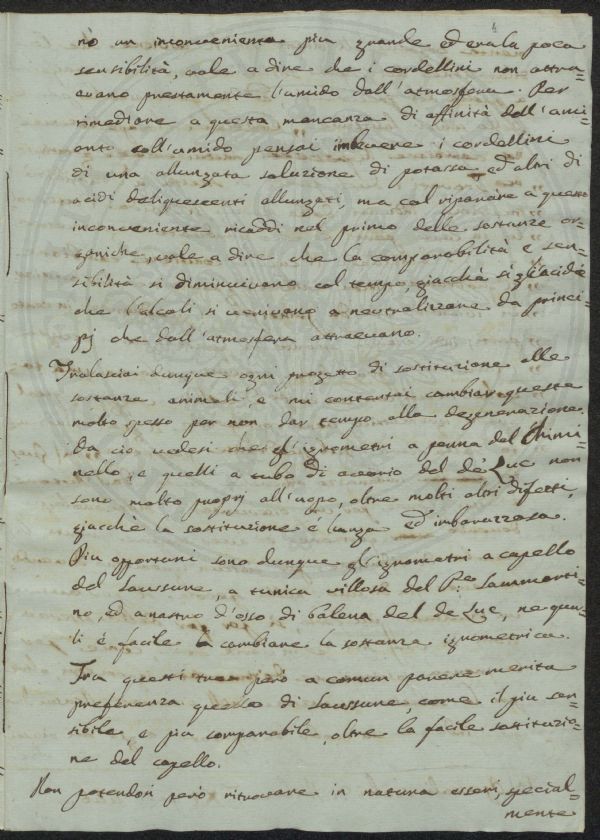 4
nò un inconveniente piu grande ed era la poca
sensibilità, vale a dire che i cordellini non attra=
evano prestamente l'umido dall'atmosfera. Per
rimediare a questa mancanza di affinità dell'ami=
anto coll'umido pensai imbevere i cordellini
di una allungata soluzione di potassa, ed altri di
acidi deliquescenti allungati, ma col riparare a questo
inconveniente ricaddi nel primo delle sostanze or=
ganiche, vale a dire che la comparabilità e sen=
sibilità si diminuivano col tempo, giacchè si gli acidi
che l'alcali si venivano a neutralizzare da princi=
pj che dall'atmosfera attraevano.
Tralasciai dunque ogni progetto di sostituzione alle
sostanze animali, e mi contentai cambiar queste
molto spesso per non dar tempo alla degenerazione.
Da ciò vedesi che gl'igrometri a penna del Chimi=
nello, e quelli a tubo di avorio del de Luc non
sono molto proprj all'uopo, oltre molti altri difetti,
giacchè la sostituzione è lunga ed imbarazzosa.
Piu opportuni sono dunque gl'igrometri a capello
del Saussure, a tunica villosa del P.e Sammarti=
no, ed a nastro d'osso di balena del de Luc, ne qua=
li è facile cambiare la sostanza igrometrica.
Tra questi tre però a comun parere merita
preferenza quello di Saussure, come il piu sen=
sibile, e piu comparabile, oltre la facile sostituzio=
ne del capello.
Non potendosi però ritrovare in natura esseri, special=
mente